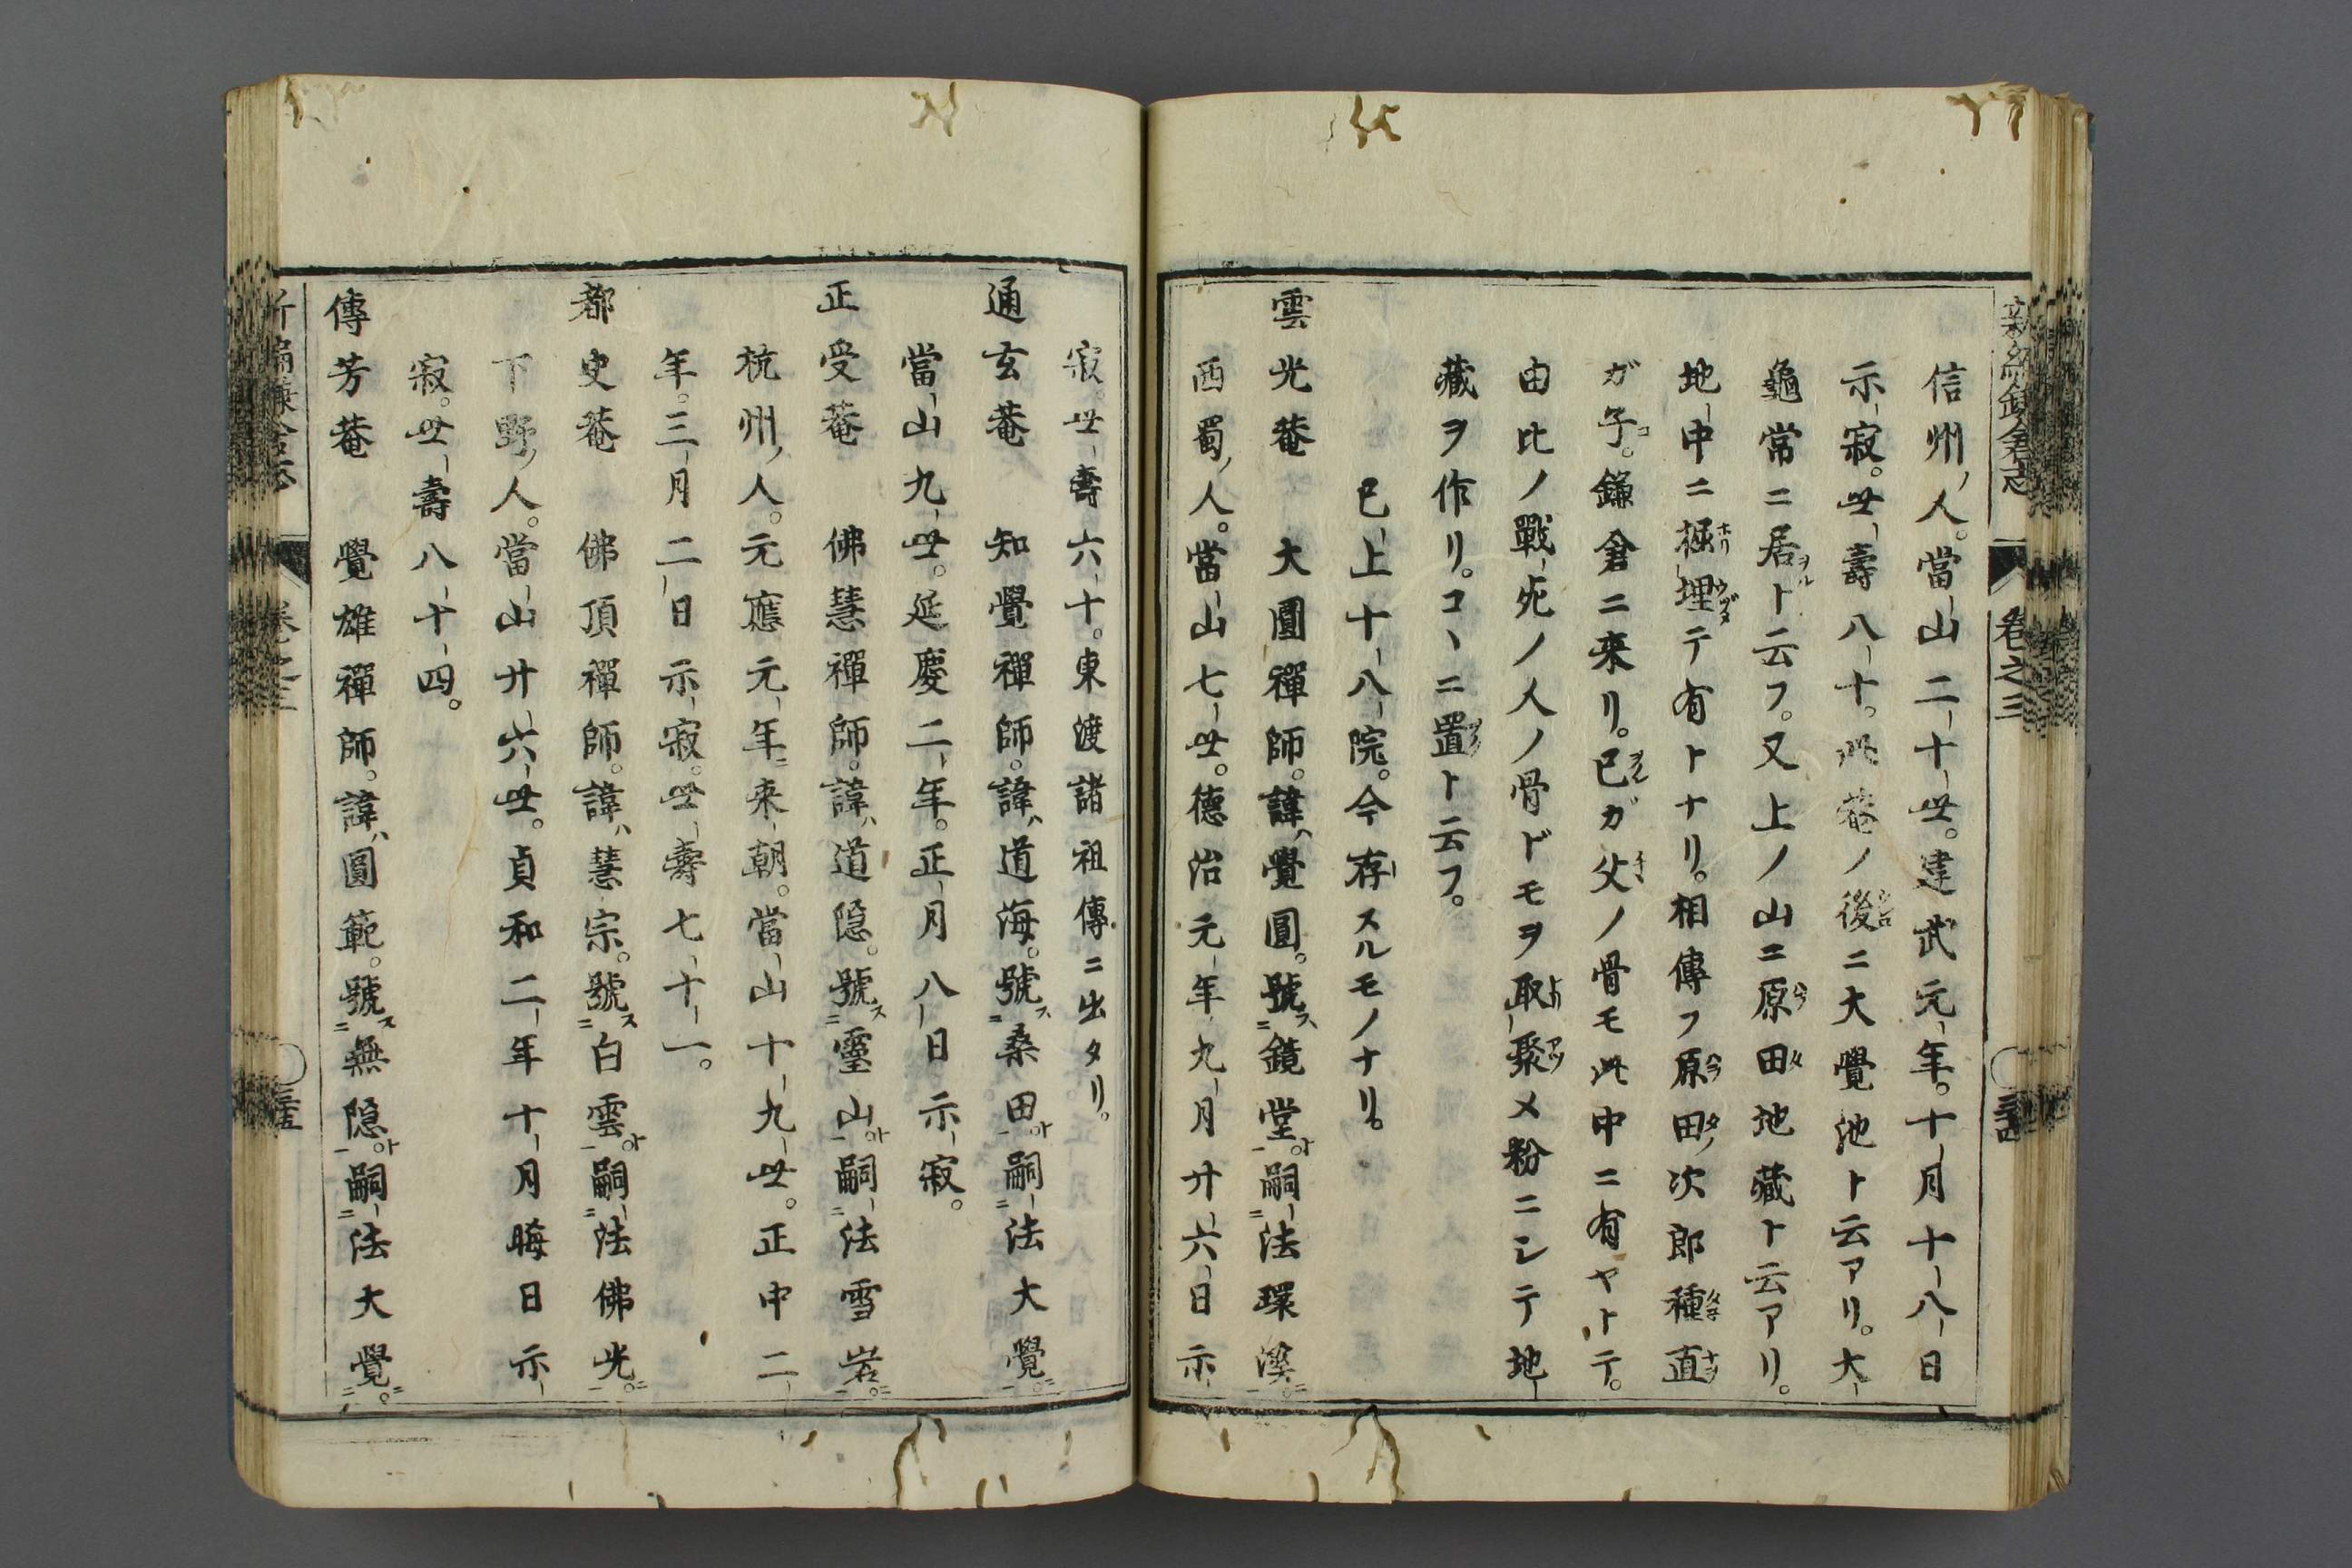 新編鎌倉志 卷之三 三十四
信州ノ人。當山二十世。建武元年。十月十八日
示寂。世壽八十。此菴ノ後ニ大覺池ト云アリ。大
龜常ニ居ト云フ。又上ノ山ニ原田地藏ト云アリ。
地中ニ掘埋テ有トナリ。相傳フ原田次郎種直
ガ子。鎌倉ニ来リ。已ガ父ノ骨モ此中ニ有ヤトテ。
由比ノ戰死ノ人ノ骨ドモヲ取聚メ粉ニシテ地
藏ヲ作リ。コヽニ置ト云フ。
已上十八院。今存スルモノナリ。
雲光菴 大圓禪師。諱ハ覺圓。號ス鏡堂ト。嗣法環溪ニ。
西蜀ノ人。當山七世。德治元年九月廿六日示
寂。世壽六十。東渡諸祖傳ニ出タリ。
通玄菴 知覺禪師。諱ハ道海。號ス桑田ト。嗣法大覺ニ。
當山九世。延慶二年。正月八日示寂。
正受菴 佛慧禪師。諱ハ道隱。號ス靈山ト。嗣法雪岩ニ。
杭州ノ人。元應元年ニ来朝。當山十九世。正中二
年。三月二日示寂。世壽七十一。
都史菴 佛頂禪師。諱ハ慧宗。號ス白雲ト。嗣法佛光ニ。
下野ノ人。當山廿六世。貞和二年十月晦日示
寂。世壽八十四。
傳芳菴 覺雄禪師。諱ハ圓範。號ス無隱ト。嗣法大覺ニ。
新編鎌倉志 卷之三 三十五